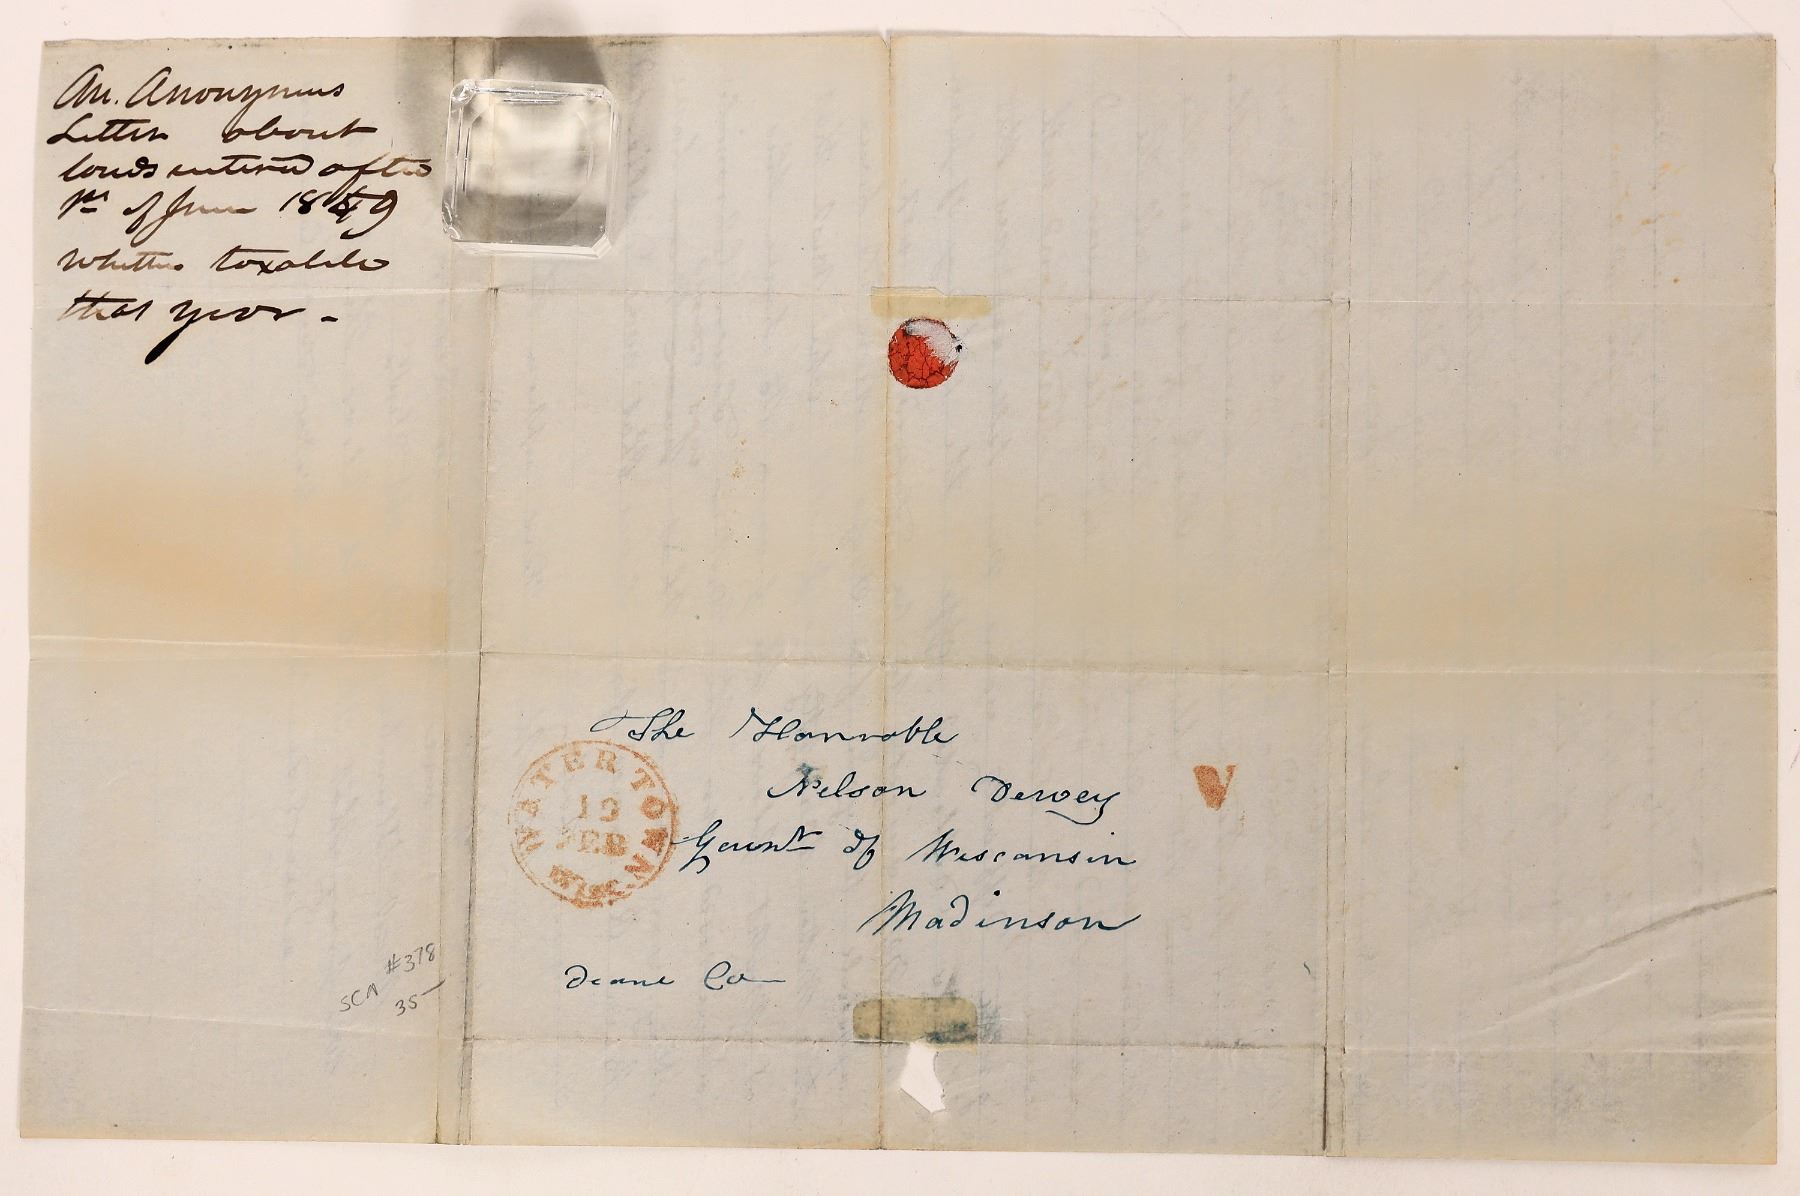 An. Anonymus
Letter about
lands entered after
1st of June 1849
Whether taxable
that year -
The Honnroble
Nelson Dewey
WATERTOWN
19
FEB
WISC.
V
Gounr of Wisconsin
Madinson
Deane Co
#378
SCA
35-